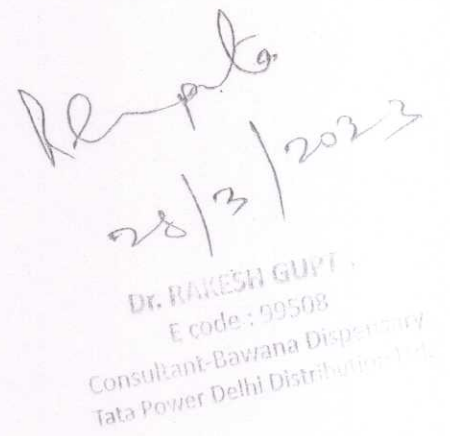 RGupta
28/3/2023
Dr. RAKESH GUPT
E code : 99508
Consultant-Bawana Dispensary
Tata Power Delhi Distribution Ltd.